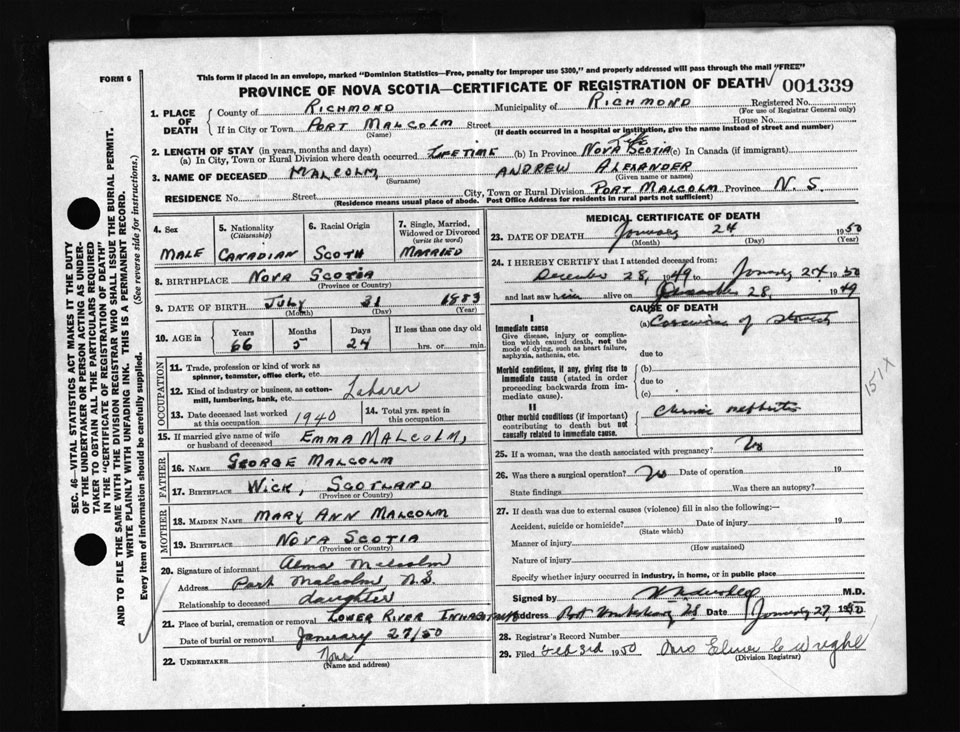 This form if placed in an envelope, marked "Dominion Statistics—Free, penalty for improper use $300," and properly addressed will pass through the mail "FREE"
FORM 6
PROVINCE OF NOVA SCOTIA—CERTIFICATE OF REGISTRATION OF DEATH 001339
SEC. 46—VITAL STATISTICS ACT MAKES IT THE DUTY
OF THE UNDERTAKER OR PERSON ACTING AS UNDER-
TAKER TO OBTAIN ALL THE PARTICULARS REQUIRED
IN THE "CERTIFICATE OF REGISTRATION OF DEATH"
AND TO FILE THE SAME WITH THE DIVISION REGISTRAR WHO SHALL ISSUE THE BURIAL PERMIT.
WRITE PLAINLY WITH UNFADING INK. THIS IS A PERMANENT RECORD.
Every item of information should be carefully supplied. (See reverse side for instructions.)
1. PLACE OF DEATH
County of RICHMOND Municipality of RICHMOND Registered No.
(For use of Registrar General only)
If in City or Town PORT MALCOLM Street House No.
(Name) (If death occurred in a hospital or institution, give the name instead of street and number)
2. LENGTH OF STAY (in years, months and days)
(a) In City, Town or Rural Division where death occurred LIFETIME (b) In Province NOVA SCOTIA Life (c) In Canada (if immigrant)
3. NAME OF DECEASED MALCOLM ANDREW ALEXANDER
(Surname) (Given name or names)
RESIDENCE No. Street City, Town or Rural Division PORT MALCOLM Province N. S.
(Residence means usual place of abode. Post Office Address for residents in rural parts not sufficient)
4. Sex
MALE
5. Nationality
(Citizenship)
CANADIAN
6. Racial Origin
SCOTH
7. Single, Married,
Widowed or Divorced
(write the word)
MARRIED
8. BIRTHPLACE NOVA SCOTIA
(Province or Country)
9. DATE OF BIRTH JULY 31 1883
(Month) (Day) (Year)
10. AGE in
Years Months Days If less than one day old
66 5 24 hrs. or min.
OCCUPATION
11. Trade, profession or kind of work as
spinner, teamster, office clerk, etc.
12. Kind of industry or business, as cotton-
mill, lumbering, bank, etc. Laborer
13. Date deceased last worked
at this occupation 1940
14. Total yrs. spent in
this occupation
15. If married give name of wife
or husband of deceased EMMA MALCOLM,
FATHER
16. NAME GEORGE MALCOLM
17. BIRTHPLACE WICK, SCOTLAND
(Province or Country)
MOTHER
18. MAIDEN NAME MARY ANN MALCOLM
19. BIRTHPLACE NOVA SCOTIA
(Province or Country)
20. Signature of informant Alma Malcolm
Address Port Malcolm N.S.
Relationship to deceased daughter
21. Place of burial, cremation or removal LOWER RIVER INHABITANTS
Date of burial or removal January 27/50
22. UNDERTAKER None
(Name and address)
MEDICAL CERTIFICATE OF DEATH
23. DATE OF DEATH January 24 1950
(Month) (Day) (Year)
24. I HEREBY CERTIFY that I attended deceased from:
December 28, 1949 to January 24 1950
and last saw him alive on December 28, 1949
CAUSE OF DEATH
I
Immediate cause
Give disease, injury or complica-
tion which caused death, not the
mode of dying, such as heart failure,
asphyxia, asthenia, etc.
(a) Carcinoma of stomach
due to
Morbid conditions, if any, giving rise to
immediate cause (stated in order
proceeding backwards from im-
mediate cause).
(b)
due to
(c)
II
Other morbid conditions (if important)
contributing to death but not
causally related to immediate cause.
Chronic nephritis
151X
25. If a woman, was the death associated with pregnancy? No
26. Was there a surgical operation? No Date of operation 19
State findings Was there an autopsy?
27. If death was due to external causes (violence) fill in also the following:—
Accident, suicide or homicide? Date of injury 19
(State which)
Manner of injury
(How sustained)
Nature of injury
Specify whether injury occurred in industry, in home, or in public place
Signed by M.D.
Address Port Hawkesbury NS Date January 27, 1950
28. Registrar's Record Number
29. Filed Feb 3rd 1950 Mrs Elmer C Wright
(Division Registrar)